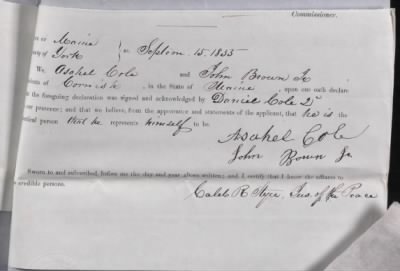 Commissioner.
of Maine
ty of York } ss Septem. 15. 1855
We Asahel Cole and John Brown Jr
dents of Cornish, in the State of Maine, upon our oath declare
the foregoing declaration was signed and acknowledged by Daniel Cole 2d
our presence; and that we believe, from the appearance and statements of the applicant, that he is the
tical person that he represents himself to be.
Asahel Cole
John Brown Jr
Sworn to and subscribed, before me the day and year above written; and I certify that I know the affiants to
e credible persons.
Caleb R Ayer, Jus. of the Peace